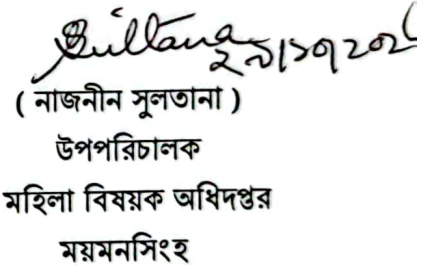 Sultana
( নাজনীন সুলতানা )
উপপরিচালক
মহিলা বিষয়ক অধিদপ্তর
ময়মনসিংহ